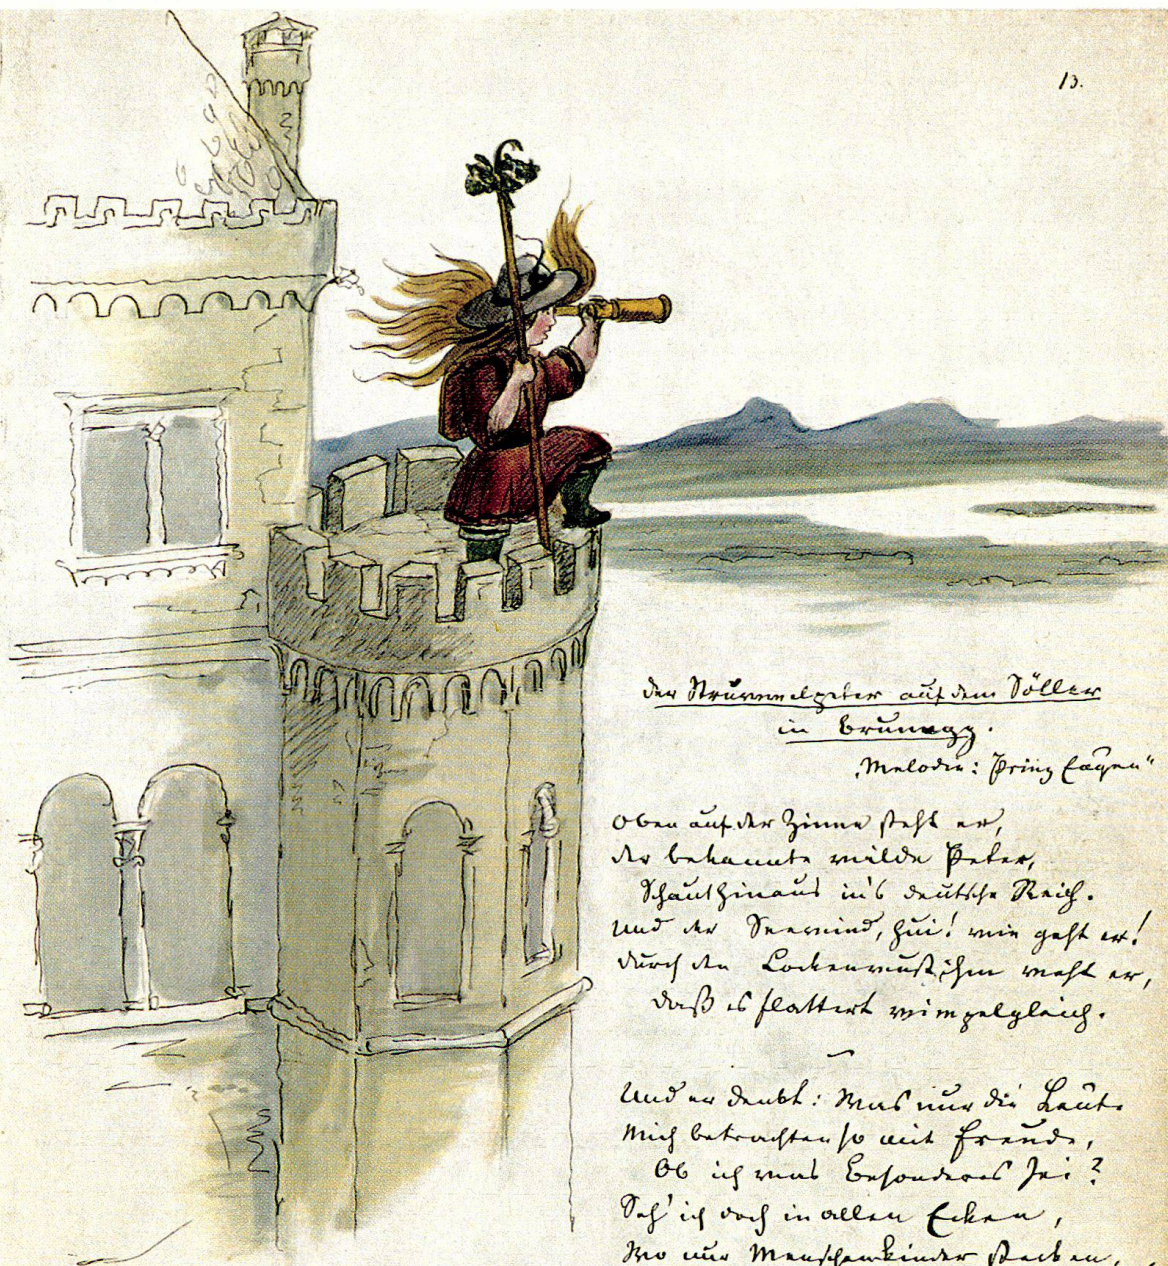 13.
der Struwwelpeter auf dem Söller
in Brunegg.
„Melodie: Prinz Eugen“
Oben auf der Zinne steht er,
der bekannte wilde Peter,
Schaut hinaus in's deutsche Reich.
Und der Seewind, hui! wie geht er!
durch den Lockenwust ihm weht er,
daß es flattert wimpelgleich.
Und er denkt: Was nur die Leute
Mich betrachten so mit Freude,
Ob ich was Besonderes sei?
Seh' ich doch in allen Ecken,
Wo nur Menschenkinder stecken,